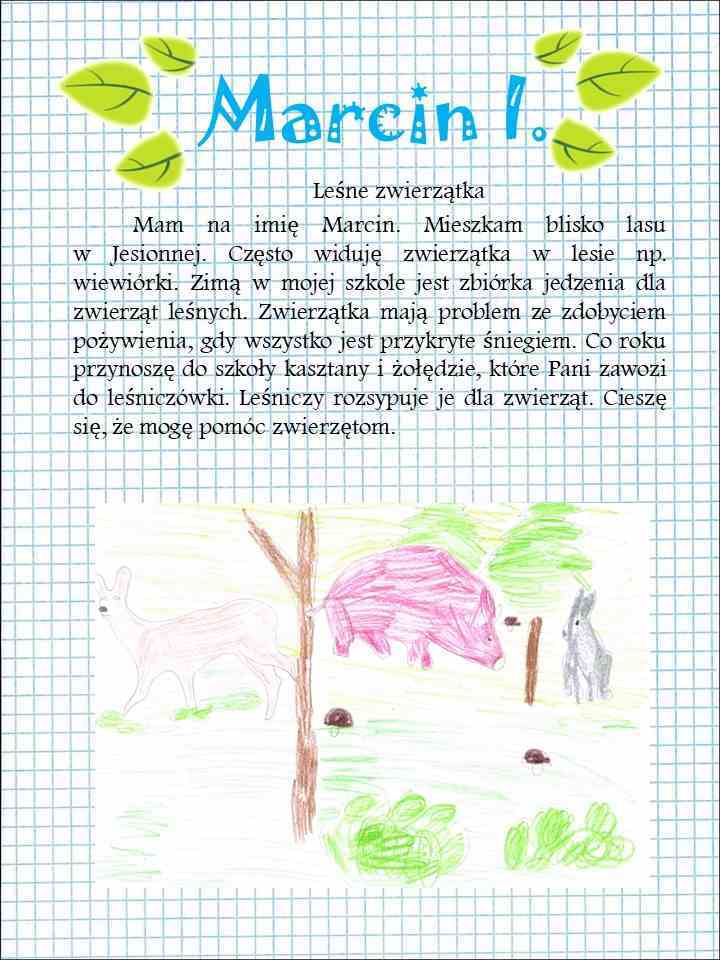 Marcin I.
Leśne zwierzątka
Mam na imię Marcin. Mieszkam blisko lasu
w Jesionnej. Często widuję zwierzątka w lesie np.
wiewiórki. Zimą w mojej szkole jest zbiórka jedzenia dla
zwierząt leśnych. Zwierzątka mają problem ze zdobyciem
pożywienia, gdy wszystko jest przykryte śniegiem. Co roku
przynoszę do szkoły kasztany i żołędzie, które Pani zawozi
do leśniczówki. Leśniczy rozsypuje je dla zwierząt. Cieszę
się, że mogę pomóc zwierzętom.